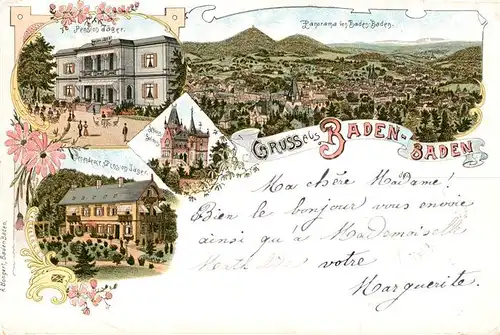 Pension Jäger.
Panorama von Baden-Baden.
GRUSS aus BADEN-
BADEN
Dependence Pension Jäger.
Ma chère Madame!
Bien le bonjour vous envoie
ainsi qu'à Mademoiselle
votre
Marguerite.
Baden Baden.